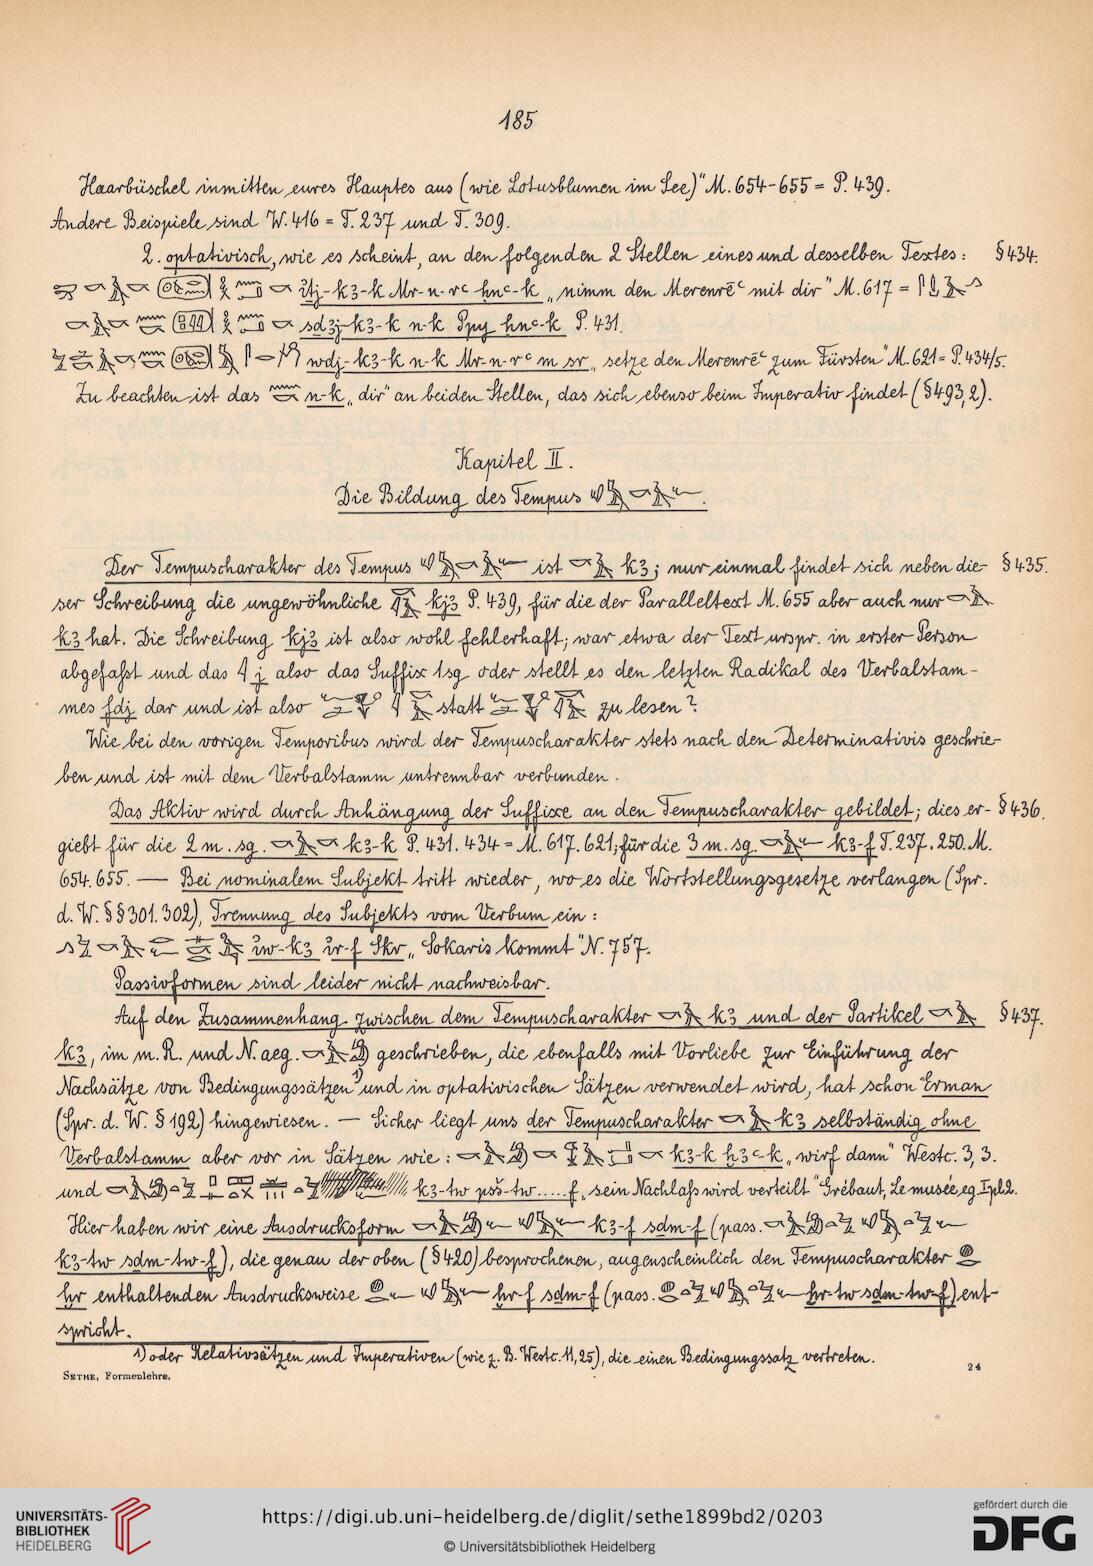 185
Haarbüschel inmitten eures Hauptes aus (wie Lotusblumen im See)" M. 654-655 = P. 439.
Andere Beispiele sind W. 416 = T. 237 und T. 309.
2. optativisch, wie es scheint, an den folgenden 2 Stellen eines und desselben Textes: § 434.
ꞽṯj-k3-k Mr-n-rꜥ ḥnꜥ-k „nimm den Merenrēꜥ mit dir" M. 617 =
sd3j-k3-k n-k Ppy ḥnꜥ-k P. 431.
wdj-k3-k n-k Mr-n-rꜥ m sr „setze den Merenrēꜥ zum Fürsten" M. 621 = P. 434/5.
Zu beachten ist das n-k „dir" an beiden Stellen, das sich ebenso beim Imperativ findet (§ 493,2).
Kapitel II.
Die Bildung des Tempus
Der Tempuscharakter des Tempus ist k3; nur einmal findet sich neben die- § 435.
ser Schreibung die ungewöhnliche kj3 P. 439, für die der Paralleltext M. 655 aber auch nur
k3 hat. Die Schreibung kj3 ist also wohl fehlerhaft; war etwa der Text urspr. in erster Person
abgefaßt und das j also das Suffix 1sg oder stellt es den letzten Radikal des Verbalstam-
mes fdj dar und ist also statt zu lesen?
Wie bei den vorigen Temporibus wird der Tempuscharakter stets nach den Determinativis geschrie-
ben und ist mit dem Verbalstamm untrennbar verbunden.
Das Aktiv wird durch Anhängung der Suffixe an den Tempuscharakter gebildet; dies er- § 436.
giebt für die 2 m. sg. k3-k P. 431. 434 = M. 617. 621; für die 3 m. sg. k3-f T. 237. 250. M.
654. 655. — Bei nominalem Subjekt tritt wieder, wo es die Wortstellungsgesetze verlangen (Spr.
d. W. §§ 301. 302), Trennung des Subjekts vom Verbum ein:
ꞽw-k3 ꞽr-f Skr „Sokaris kommt" N. 757.
Passivformen sind leider nicht nachweisbar.
Auf den Zusammenhang zwischen dem Tempuscharakter k3 und der Partikel § 437.
k3, im m. R. und N. aeg. geschrieben, die ebenfalls mit Vorliebe zur Einführung der
Nachsätze von Bedingungssätzen 1) und in optativischen Sätzen verwendet wird, hat schon Erman
(Spr. d. W. § 192) hingewiesen. — Sicher liegt uns der Tempuscharakter k3 selbständig ohne
Verbalstamm aber vor in Sätzen wie: k3-k ḫ3ꜥ-k „wirf dann" Westc. 3, 3.
und k3-tw psš-tw.....f „sein Nachlaß wird verteilt" Grébaut, Le musée eg. I pl. 2.
Hier haben wir eine Ausdrucksform k3-f sḏm-f (pass.
k3-tw sḏm-tw-f), die genau der oben (§ 420) besprochenen, augenscheinlich den Tempuscharakter
ḫr enthaltenden Ausdrucksweise ḫr-f sḏm-f (pass. ḫr-tw sḏm-tw-f) ent-
spricht.
1) oder Relativsätzen und Imperativen (wie z. B. Westc. 11, 25), die einen Bedingungssatz vertreten.
SETHE, Formenlehre. 24
UNIVERSITÄTS-
BIBLIOTHEK
HEIDELBERG
https://digi.ub.uni-heidelberg.de/diglit/sethe1899bd2/0203
© Universitätsbibliothek Heidelberg
gefördert durch die
DFG